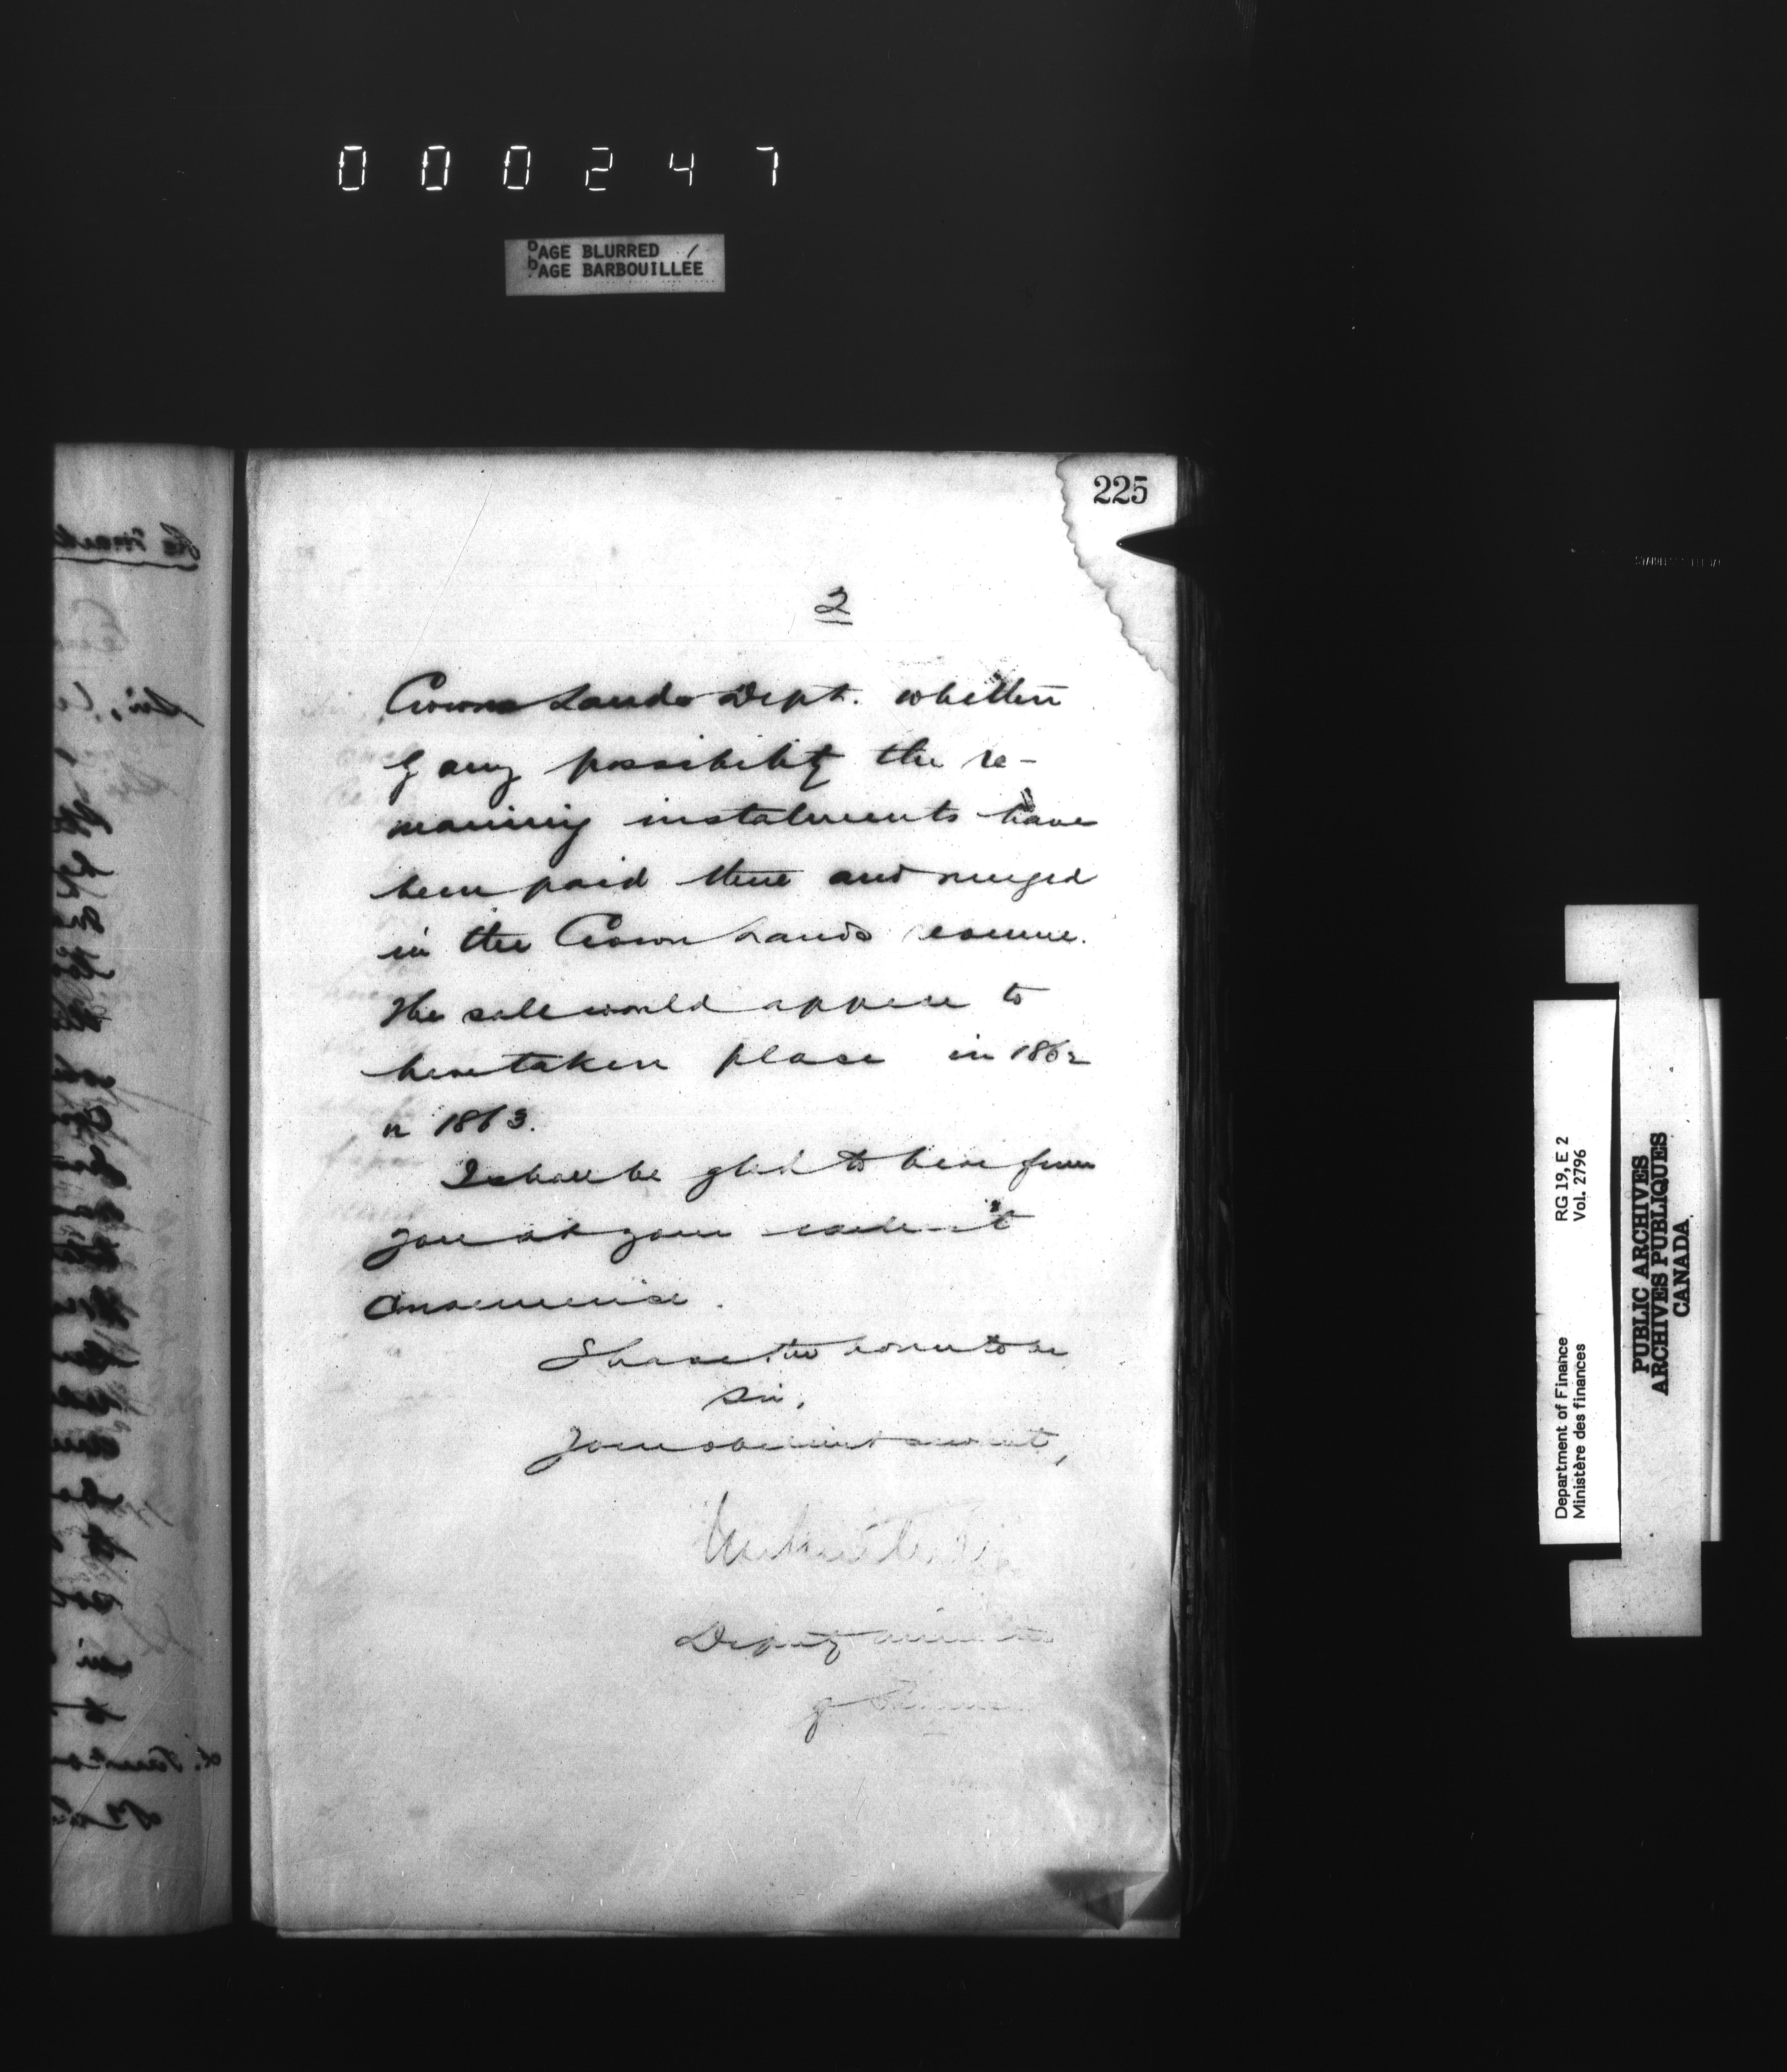 000247
PAGE BLURRED
PAGE BARBOUILLÉE
225
2
Crown Lands Dept. whether
by any possibility the re-
maining instalments have
been paid there and merged
in the Crown Lands revenue.
The sale would appear to
have taken place in 1862
or 1863.
I shall be glad to hear from
you at your earliest
convenience.
I have the honor to be
Sir,
Your obedient servant,
Deputy Minister
of Finance
Department of Finance RG 19, E 2
Ministère des finances Vol. 2796
PUBLIC ARCHIVES
ARCHIVES PUBLIQUES
CANADA